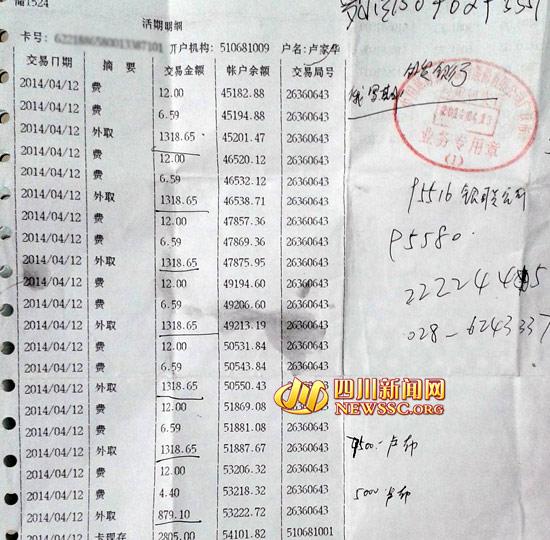 储1524
活期明细
卡号: 开户机构: 510681009 户名: 卢家华
交易日期 摘 要 交易金额 帐户余额 交易局号
2014/04/12 费 12.00 45182.88 26360643
2014/04/12 费 6.59 45194.88 26360643
2014/04/12 外取 1318.65 45201.47 26360643
2014/04/12 费 12.00 46520.12 26360643
2014/04/12 费 6.59 46532.12 26360643
2014/04/12 外取 1318.65 46538.71 26360643
2014/04/12 费 12.00 47857.36 26360643
2014/04/12 费 6.59 47869.36 26360643
2014/04/12 外取 1318.65 47875.95 26360643
2014/04/12 费 12.00 49194.60 26360643
2014/04/12 费 6.59 49206.60 26360643
2014/04/12 外取 1318.65 49213.19 26360643
2014/04/12 费 12.00 50531.84 26360643
2014/04/12 费 6.59 50543.84 26360643
2014/04/12 外取 1318.65 50550.43 26360643
2014/04/12 费 12.00 51869.08 26360643
2014/04/12 费 6.59 51881.08 26360643
2014/04/12 外取 1318.65 51887.67 26360643
2014/04/12 费 12.00 53206.32 26360643
2014/04/12 费 4.40 53218.32 26360643
2014/04/12 外取 879.10 53222.72 26360643
2014/04/12 卡现存 2805.00 54101.82 510681001
业务专用章
(1)
95516 银联公司
95580
028-6243337
四川新闻网
NEWSSC.ORG
7500 卢布
5000 卢布